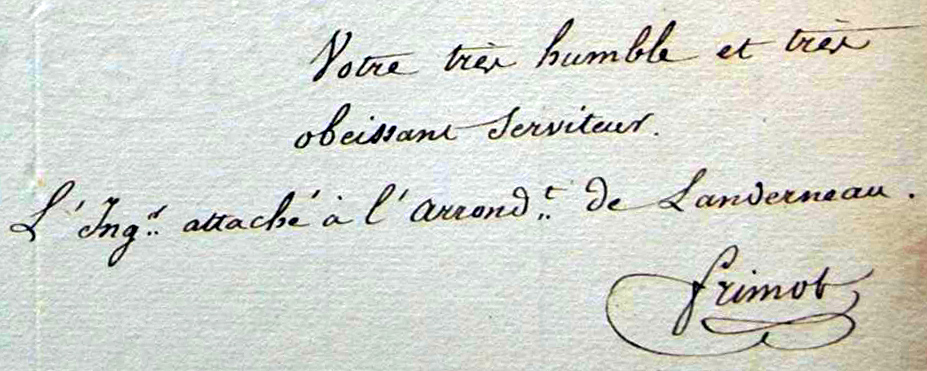 Votre très humble et très
obeissant Serviteur.
L'Ingr. attaché à l'Arrondt. de Landerneau.
frimot